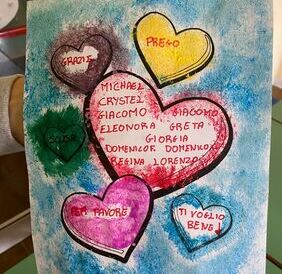 GRAZIE
PREGO
MICHAEL
CRYSTEL
GIACOMO GIACOMO
ELEONORA GRETA
GIORGIA
DOMENICO R DOMENICO L
REGINA LORENZO
SCUSA
PER FAVORE
TI VOGLIO
BENE!